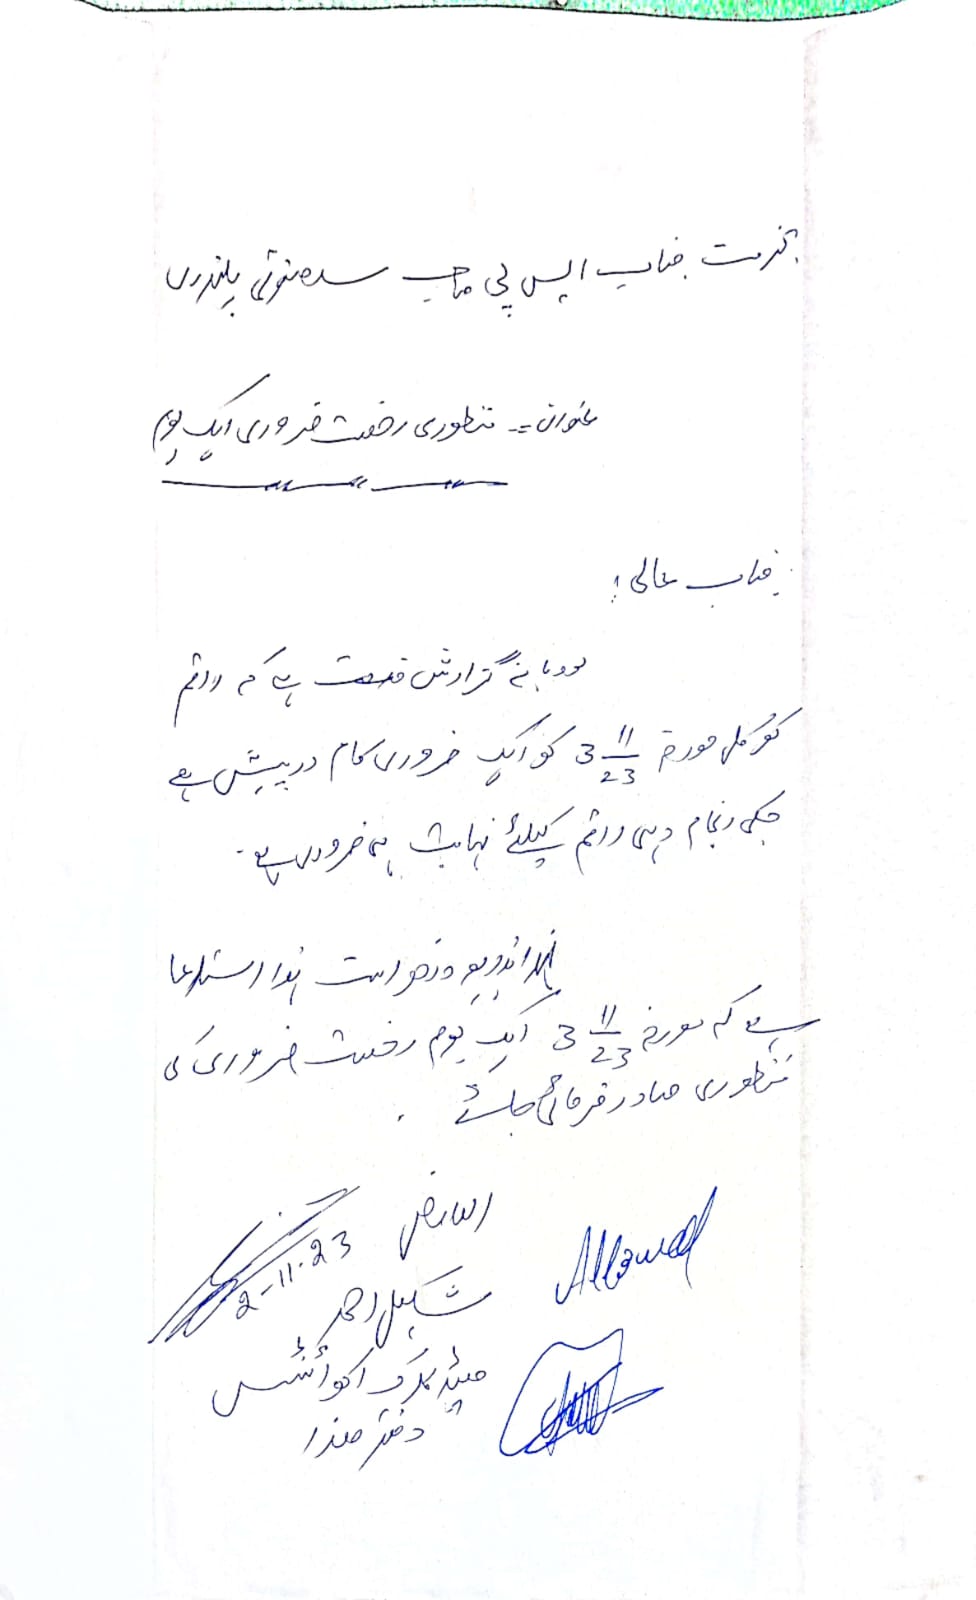 بخدمت جناب ایس پی صاحب سدھنوتی پلندری
عنوان :۔ منظوری رخصت ضروری ایک یوم
جناب عالی!
مودبانہ گزارش خدمت ہے کہ راقم
کو کل مورخہ 3 11/23 کو ایک ضروری کام درپیش ہے
جسکی انجام دہی راقم کیلئے نہایت ہی ضروری ہے۔
لہذا بذریعہ درخواست ہذا استدعا
ہے کہ مورخہ 3 11/23 ایک یوم رخصت ضروری کی
منظوری صادر فرمائی جائے۔
العارض
2-11-23
شکیل احمد
Allowed
ہیڈ کلرک اکوائنٹس
دفتر ھذا